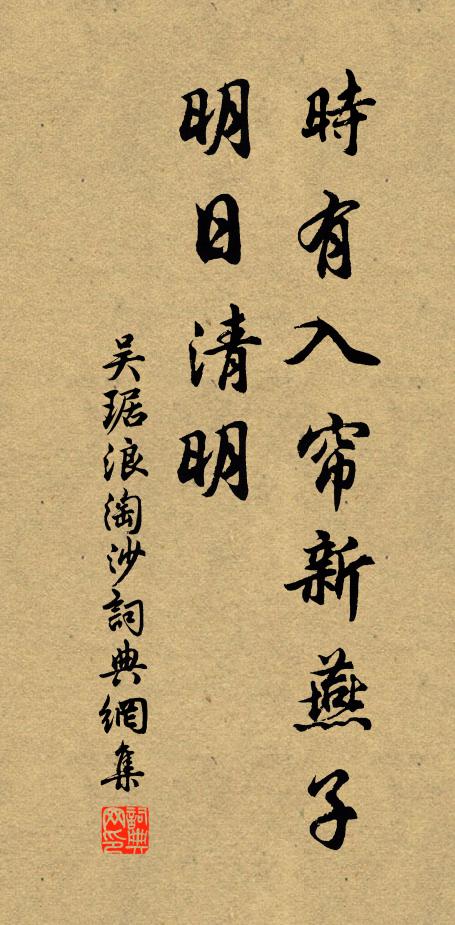 時有入帘新燕子
明日清明
吴琚浪淘沙詞典網集
詞典网印